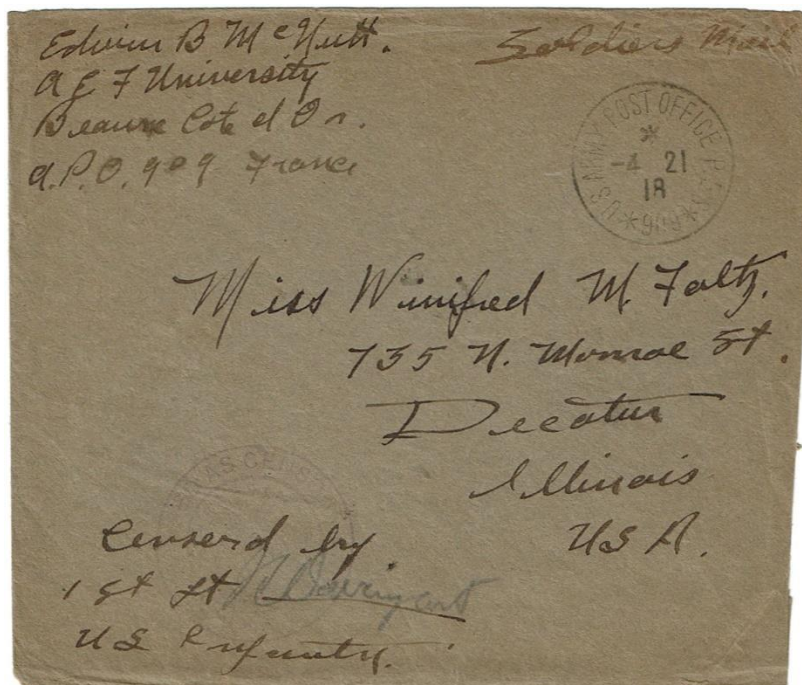 Edwin B McNutt.
A E F University
Beaune Cote d Or.
A.P.O. 909 France
Soldiers Mail
U.S. ARMY POST OFFICE
* 909 *
-4 21
18
Miss Winifred M. Foltz.
735 N. Monroe St.
Decatur
Illinois
U S A.
Censerd by
1st Lt
U S Infantry.